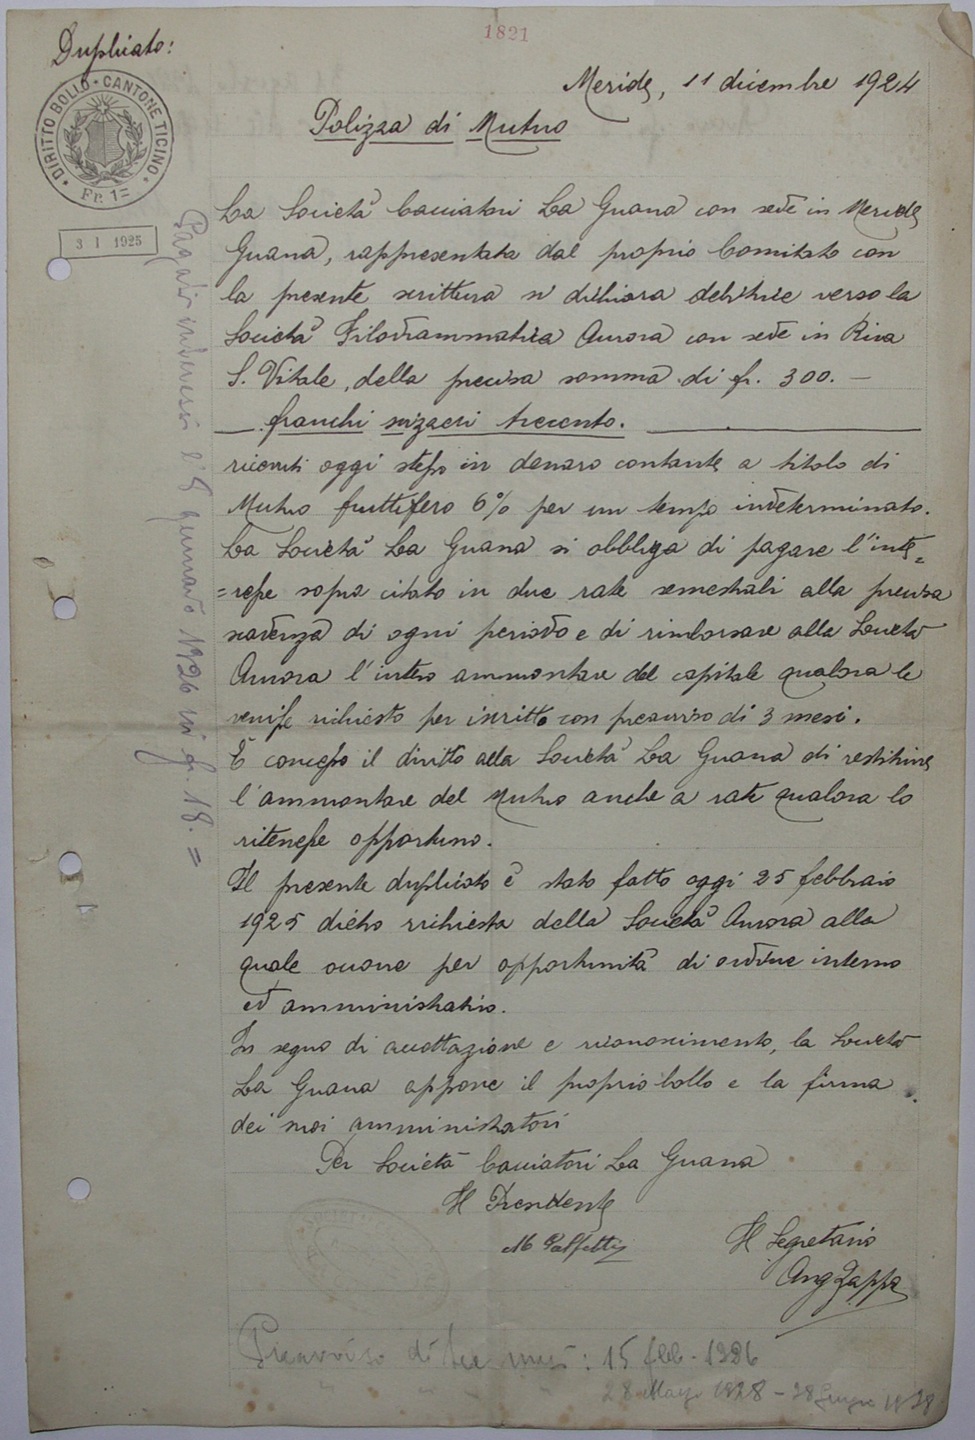 1821
Duplicato:
DIRITTO BOLLO · CANTONE TICINO ·
Fr. 1=
3 1 1925
Meride, 11 dicembre 1924
Polizza di Mutuo
La Società Cacciatori La Guana con sede in Meride
Guana, rappresentata dal proprio Comitato con
la presente scrittura si dichiara debitrice verso la
Società Filodrammatica Aurora con sede in Riva
S. Vitale, della precisa somma di fr. 300. —
franchi svizzeri trecento.
ricevuti oggi stesso in denaro contante a titolo di
Mutuo fruttifero 6% per un tempo indeterminato.
La Società La Guana si obbliga di pagare l'inte=
=resse sopra citato in due rate semestrali alla precisa
scadenza di ogni periodo e di rimborsare alla Società
Aurora l'intero ammontare del capitale qualora le
venisse richiesto per iscritto con preavviso di 3 mesi.
È concesso il diritto alla Società La Guana di restituire
l'ammontare del Mutuo anche a rate qualora lo
ritenesse opportuno.
Il presente duplicato è stato fatto oggi 25 febbraio
1925 dietro richiesta della Società Aurora alla
quale occorre per opportunità di ordine interno
ed amministrativo.
In segno di accettazione e riconoscimento, la Società
La Guana appone il proprio bollo e la firma
dei suoi amministratori
Per Società Cacciatori La Guana
Il Presidente
Il Segretario
Ang Zappa
Pagato interessi 5 gennaio 1926 in fr. 18. =
Preavviso di tre mesi: 15 febb. 1926
28 Maggio 1928 – 28 Giugno 1928